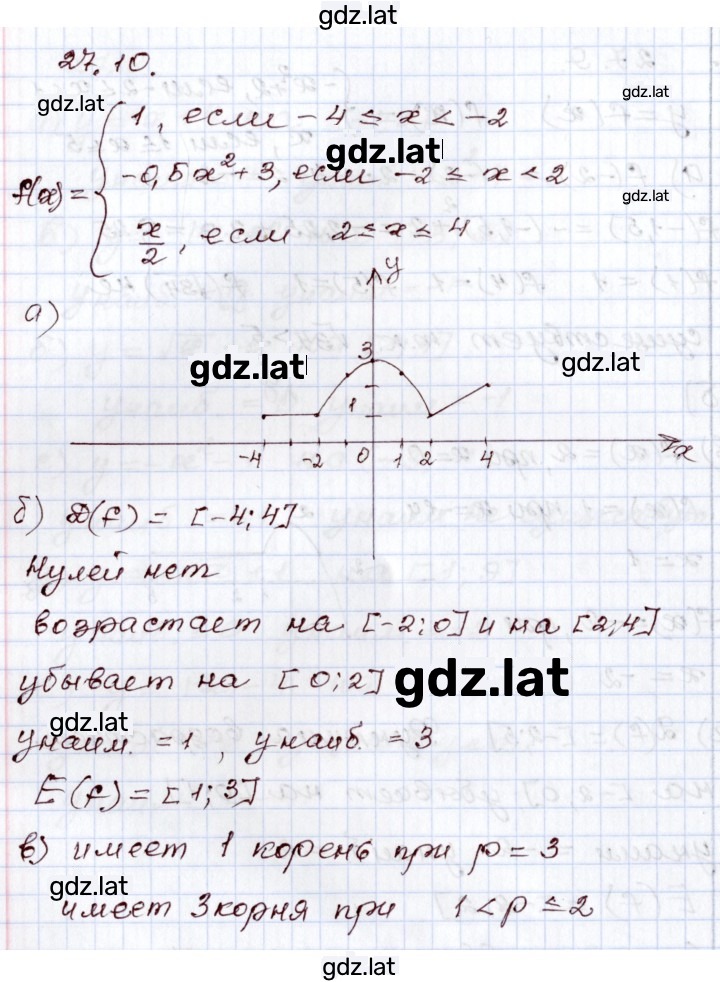 gdz.lat
27.10.
gdz.lat
gdz.lat
1, если -4 ≤ x < -2
gdz.lat
f(x) = { -0,5x² + 3, если -2 ≤ x < 2
gdz.lat
x/2, если 2 ≤ x ≤ 4
а)
y
3
gdz.lat
gdz.lat
1
-4 -2 0 1 2 4 x
б) D(f) = [-4; 4]
Нулей нет
возрастает на [-2; 0] и на [2; 4]
убывает на [0; 2]
gdz.lat
gdz.lat
yнаим. = 1, yнаиб. = 3
E(f) = [1; 3]
в) имеет 1 корень при p = 3
gdz.lat
имеет 3 корня при 1 < p ≤ 2
gdz.lat